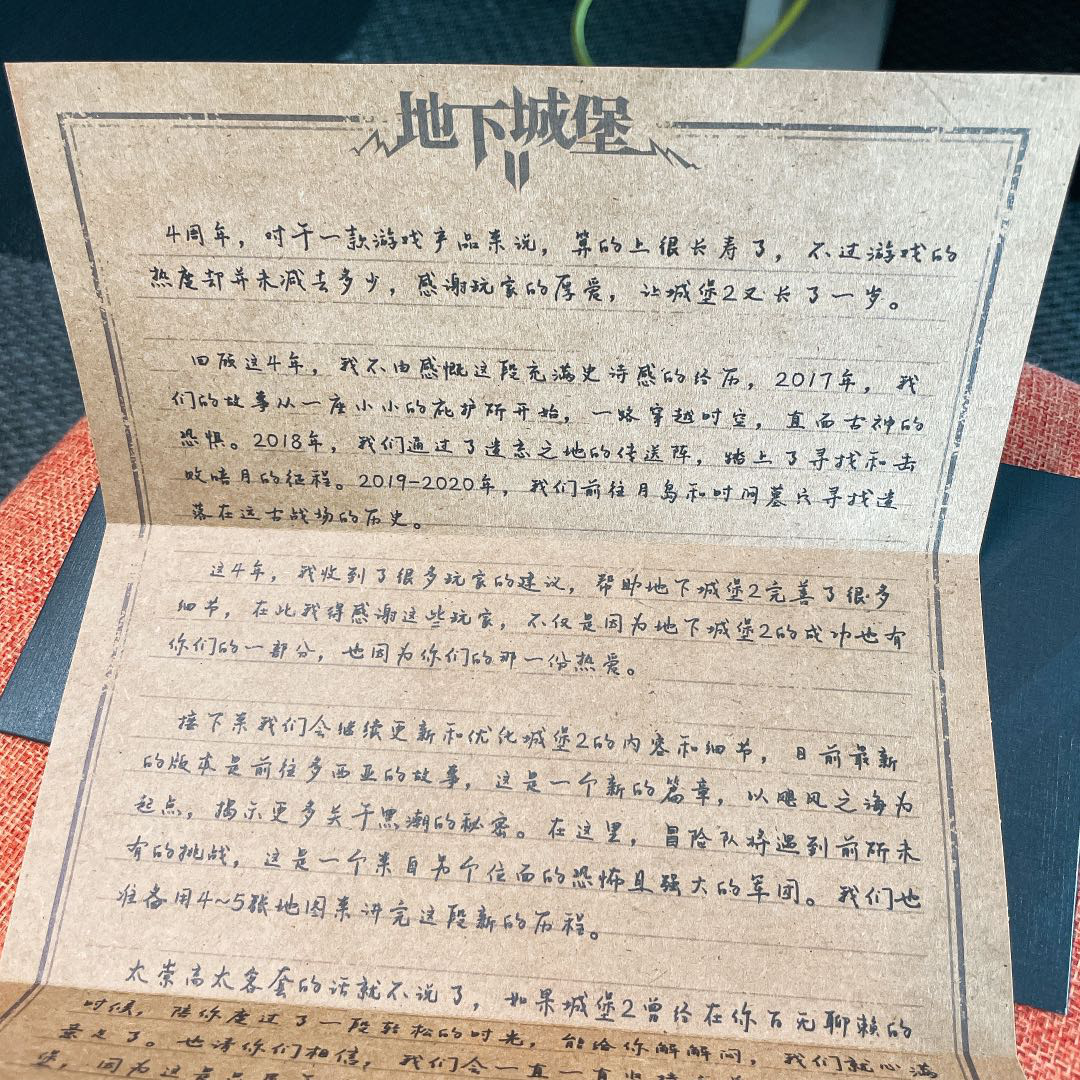 地下城堡
II
4周年，对于一款游戏产品来说，算的上很长寿了，不过游戏的
热度却并未减去多少，感谢玩家的厚爱，让城堡2又长了一岁。
回顾这4年，我不由感慨这段充满史诗感的经历，2017年，我
们的故事从一座小小的庇护所开始，一路穿越时空，直面古神的
恐惧。2018年，我们通过了遗忘之地的传送阵，踏上了寻找和击
败暗月的征程。2019-2020年，我们前往月岛和时间墓穴寻找遗
落在远古战场的历史。
这4年，我收到了很多玩家的建议，帮助地下城堡2完善了很多
细节，在此我得感谢这些玩家，不仅是因为地下城堡2的成功也有
你们的一部分，也因为你们的那一份热爱。
接下来我们会继续更新和优化城堡2的内容和细节，目前最新
的版本是前往多西亚的故事，这是一个新的篇章，以飓风之海为
起点，揭示更多关于黑潮的秘密。在这里，冒险队将遇到前所未
有的挑战，这是一个来自另个位面的恐怖且强大的军团。我们也
准备用4~5张地图来讲完这段新的历程。
太崇高太客套的话就不说了，如果城堡2曾经在你百无聊赖的
时候，陪你度过了一段轻松的时光，能给你解解闷，我们就心满
意足了。也请你们相信，我们会一直一直
堡，因为这是